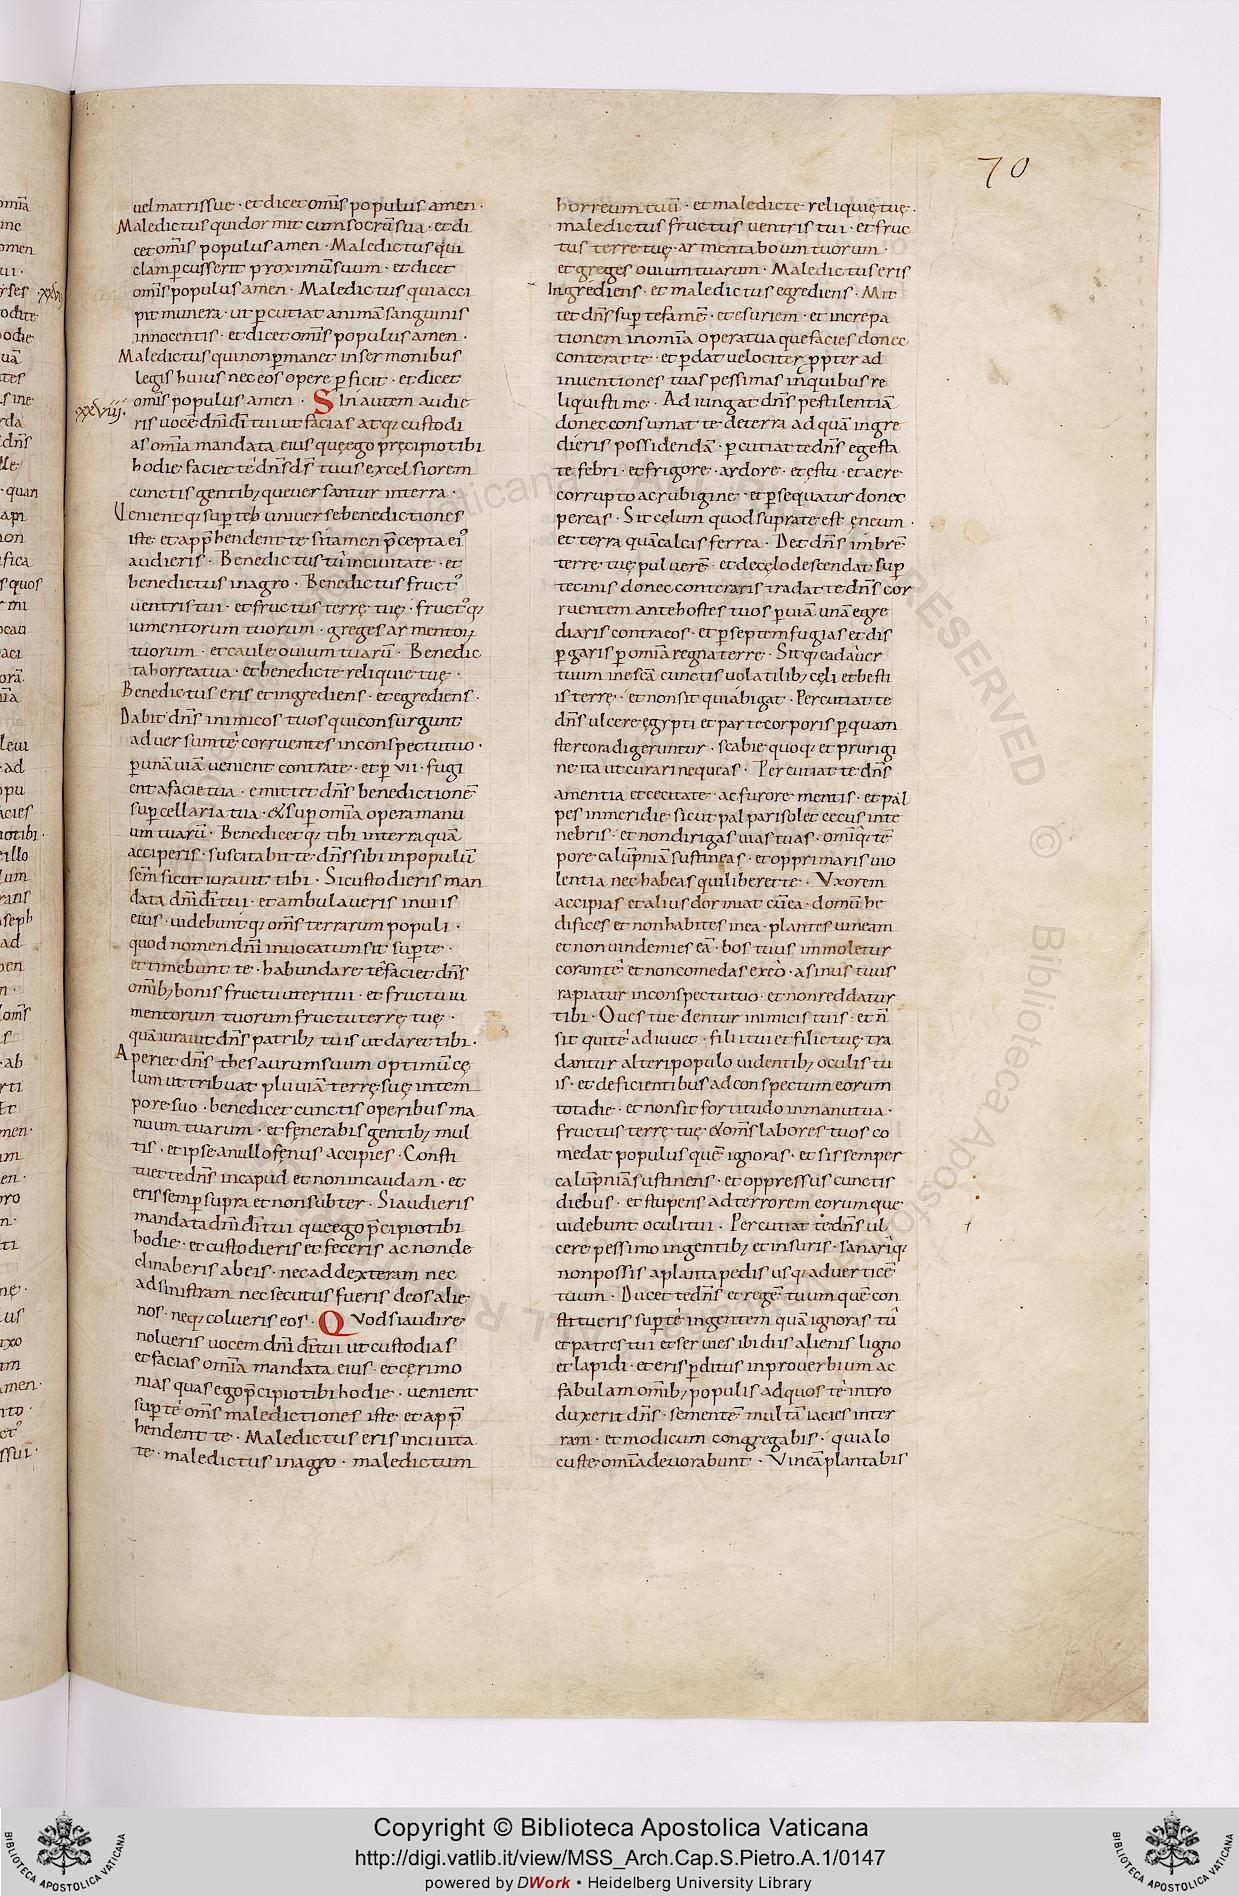 70
uel matris sue · et dicet om̅is populus amen ·
Maledictus qui dormit cum socru̅ sua · et di
cet om̅is populus amen · Maledictus qui
clam ꝑcusserit proximu̅ suum · et dicet
om̅is populus amen · Maledictus qui acci
pit munera · ut ꝑcutiat anima̅ sanguinis
innocentis · et dicet om̅is populus amen ·
Maledictus qui non ꝑmanet in sermonibus
legis huius nec eos opere ꝑficit · et dicet
xxviij.
om̅is populus amen · Sin autem audie
ris uoce̅ dn̅i di̅ tui ut facias atq; custodi
as om̅ia mandata eius quę ego pręcipio tibi
hodie faciet te dn̅s ds̅ tuus excelsiorem
cunctis gentib; que uersantur in terra ·
Uenientq; suꝑ te h uniuerse benedictiones
iste et app̅hendent te · si tamen p̅cepta ei᾿
audieris · Benedictus tu in ciuitate · et
benedictus in agro · Benedictus fruct᾿
uentris tui · et fructus terrę tuę · fruct᾿q;
iumentorum tuorum · greges armentoꝝ
tuorum · et caule ouium tuaru̅ · Benedic
ta horrea tua · et benedicte reliquie tuę ·
Benedictus eris et ingrediens · et egrediens ·
Dabit dn̅s inimicos tuos qui consurgunt
aduersum te corruentes in conspectu tuo ·
ꝑ una̅ uia̅ uenient contra te · et ꝑ vii · fugi
ent a facie tua · emittet dn̅s benedictione̅
suꝑ cellaria tua · & suꝑ om̅ia opera manu
um tuaru̅ · Benedicetq; tibi in terra qua̅
acceperis · suscitabit te dn̅s sibi in populu̅
sc̅m sicut iurauit tibi · Si custodieris man
data dn̅i di̅ tui · et ambulaueris in uiis
eius · uidebuntq; om̅s terrarum populi ·
quod nomen dn̅i inuocatum sit suꝑ te ·
et timebunt te · habundare te faciet dn̅s
om̅ib; bonis fructu uteri tui · et fructu iu
mentorum tuorum fructu terrę tuę ·
qua̅ iurauit dn̅s patrib; tuis ut daret tibi ·
Aperiet dn̅s thesaurum suum optimu̅ cę
lum ut tribuat pluuia̅ terrę suę in tem
pore suo · benedicet cunctis operibus ma
nuum tuarum · et fęnerabis gentib; mul
tis · et ipse a nullo fęnus accipies · Consti
tuet te dn̅s in caput et non in caudam · et
eris semꝑ supra et non subter · Si audieris
mandata dn̅i di̅ tui que ego p̅cipio tibi
hodie · et custodieris et feceris ac non de
clinaberis ab eis · nec ad dexteram nec
ad sinistram nec secutus fueris deos alie
nos · neq; colueris eos · Quod si audire
nolueris uocem dn̅i di̅ tui ut custodias
et facias om̅ia mandata eius · et cęrimo
nias quas ego p̅cipio tibi hodie · uenient
suꝑ te om̅s maledictiones iste et app̅
hendent te · Maledictus eris in ciuita
te · maledictus in agro · maledictum
horreum tuu̅ · et maledicte reliquię tuę ·
maledictus fructus uentris tui · et fruc
tus terre tuę · armenta boum tuorum ·
et greges ouium tuarum · Maledictus eris
Ingrediens · et maledictus egrediens · Mit
tet dn̅s suꝑ te fame̅ · et esuriem · et increpa
tionem in om̅ia opera tua que facies donec
conterat te · et ꝑdat velociter ꝓpter ad
inuentiones tuas pessimas in quibus re
liquisti me · Adiungat dn̅s pestilentia̅
donec consumat te de terra ad qua̅ ingre
dieris possidenda̅ · ꝑcutiat te dn̅s egesta
te febri · et frigore · ardore · et ęstu · et aere
corrupto ac rubigine · et ꝑsequatur donec
pereas · Sit cęlum quod supra te est ęneum ·
et terra qua̅ calcas ferrea · Det dn̅s imbre̅
terre tuę puluere̅ · et de cęlo descendat suꝑ
te cinis donec conteraris tradat te dn̅s cor
ruentem ante hostes tuos ꝑ uia̅ una̅ egre
diaris contra eos · et ꝑ septem fugias et dis
ꝑgaris ꝑ om̅ia regna terre · Sitq; cadauer
tuum in esca̅ cunctis uolatilib; cęli et besti
is terrę · et non sit qui abigat · Percutiat te
dn̅s ulcere egypti et parte corporis ꝑ quam
stercora digeruntur · scabie quoq; et prurigi
ne ita ut curari nequeas · Percutiat te dn̅s
amentia et cecitate · ac furore mentis · et pal
pes in meridie sicut palpari solet cecus in te
nebris · et non dirigas uias tuas · om̅iq; te̅
pore calu̅pnia̅ sustineas · et opprimaris uio
lentia nec habeas qui liberet te · Vxorem
accipias et alius dormiat cu̅ ea · domu̅ he
difices et non habites in ea · plantes uineam
et non uindemies ea̅ · bos tuus immoletur
coram te et non comedas ex eo · asinus tuus
rapiatur in conspectu tuo · et non reddatur
tibi · Oues tue dentur inimicis tuis · et n̅
sit qui te adiuuet · filii tui et filię tuę tra
dantur alteri populo uidentib; oculis tu
is · et deficientibus ad conspectum eorum
tota die · et non sit fortitudo in manu tua ·
fructus terrę tuę & om̅s labores tuos co
medat populus que̅ ignoras · et sis semper
calu̅pnia̅ sustinens · et oppressus cunctis
diebus · et stupens ad terrorem eorum que
uidebunt oculi tui · Percutiat te dn̅s ul
cere pessimo in gentib; et in suris · sanariq;
non possis a planta pedis usq; ad uertice̅
tuum · Ducet te dn̅s et rege̅ tuum que̅ con
stitueris suꝑ te in gentem qua̅ ignoras tu̅
et patres tui et seruies ibi diis alienis ligno
et lapidi · et eris ꝑditus in prouerbium ac
fabulam om̅ib; populis ad quos te intro
duxerit dn̅s · semente̅ multa̅ iacies in ter
ram · et modicum congregabis · quia lo
custe om̅ia deuorabunt · Vinea̅ plantabis
Copyright © Biblioteca Apostolica Vaticana
http://digi.vatlib.it/view/MSS_Arch.Cap.S.Pietro.A.1/0147
powered by DWork • Heidelberg University Library